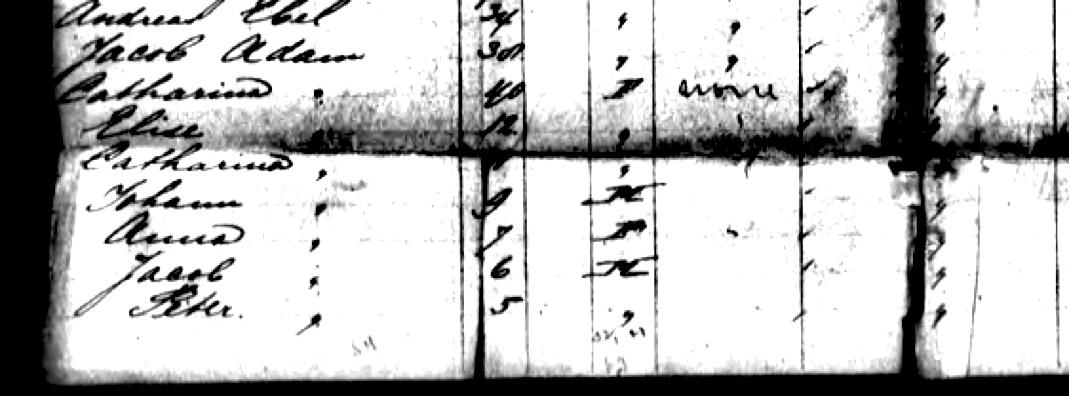 Andreas Ebel 34 " "
Jacob Adam 38 " " "
Catharina " 40 F none " "
Elise " 12 " " " "
Catharina " " "
Johann " 9 M " "
Anna " 7 F " " "
Jacob " 6 M " "
Peter. " 5 " " "
54